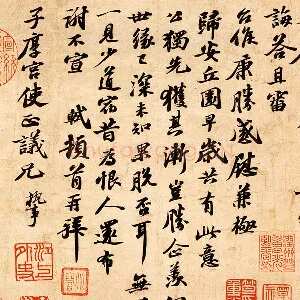 誨答且審
台候康勝感慰兼極
歸安丘園早歲共有此意
公獨先獲其漸豈勝企羨但
世緣已深未知果脫否耳無
一見少道宿昔為恨人還布
謝不宣 軾頓首再拜
子厚宮使正議兄執事